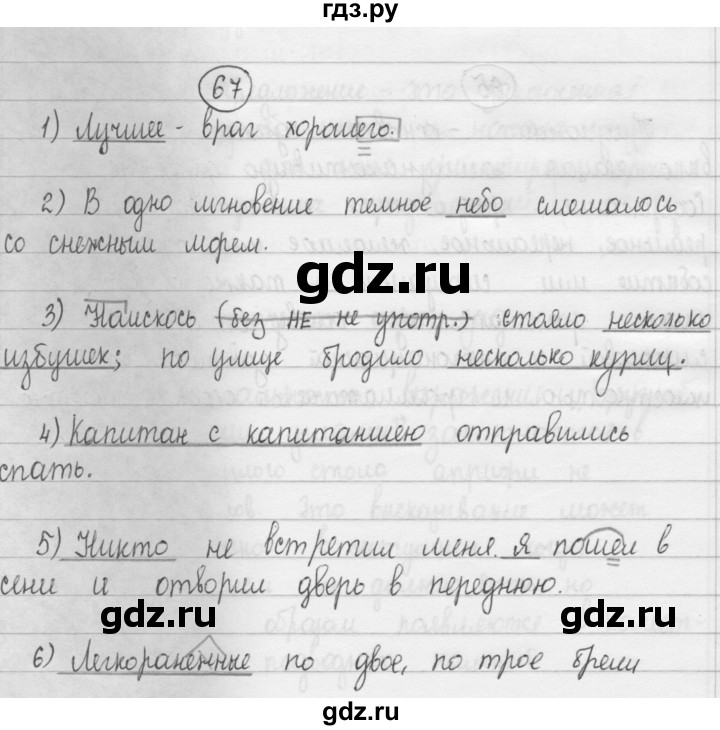 гдз.ру
67
1) Лучшее - враг хорошего.
2) В одно мгновение темное небо смешалось
со снежным морем.
gdz.ru
3) Наискось (без НЕ не употр.) стояло несколько
избушек; по улице бродило несколько куриц.
4) Капитан с капитаншею отправились
спать.
5) Никто не встретил меня. Я пошел в
сени и отворил дверь в переднюю.
gdz.ru
gdz.ru
6) Легкораненные по двое, по трое брели
gdz.ru